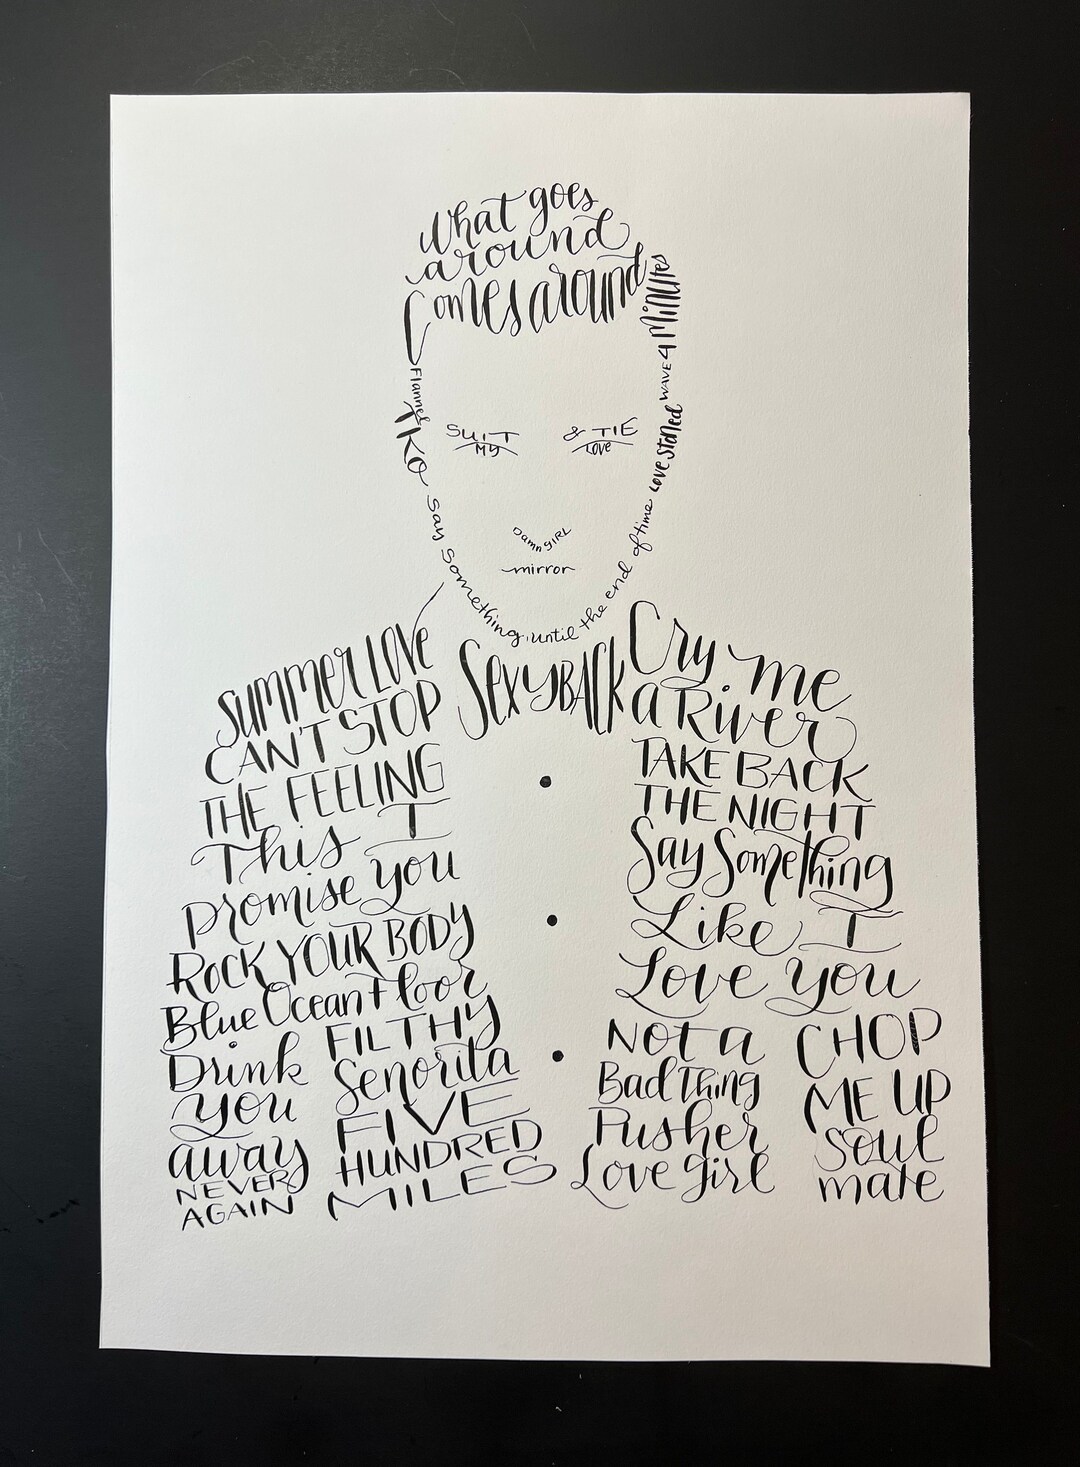 What goes
around
Comes around
4 Minutes
WAVE
Flannel
TKO
LOVE Stoned
SUIT & TIE
MY LOVE
Damn giRL
mirror
Say Something
until the end of time
SUMMER LOVE
CAN'T STOP
THE FEELING
This I
promise you
ROCK YOUR BODY
Blue Ocean Floor
Drink
you
away
NEVER
AGAIN
FILTHY
Señorita
FIVE
HUNDRED
MILES
SexyBACK
Cry me
a River
TAKE BACK
THE NIGHT
Say Something
Like I
Love you
NOT a
Bad Thing
Pusher
Love girl
CHOP
ME UP
Soul
mate